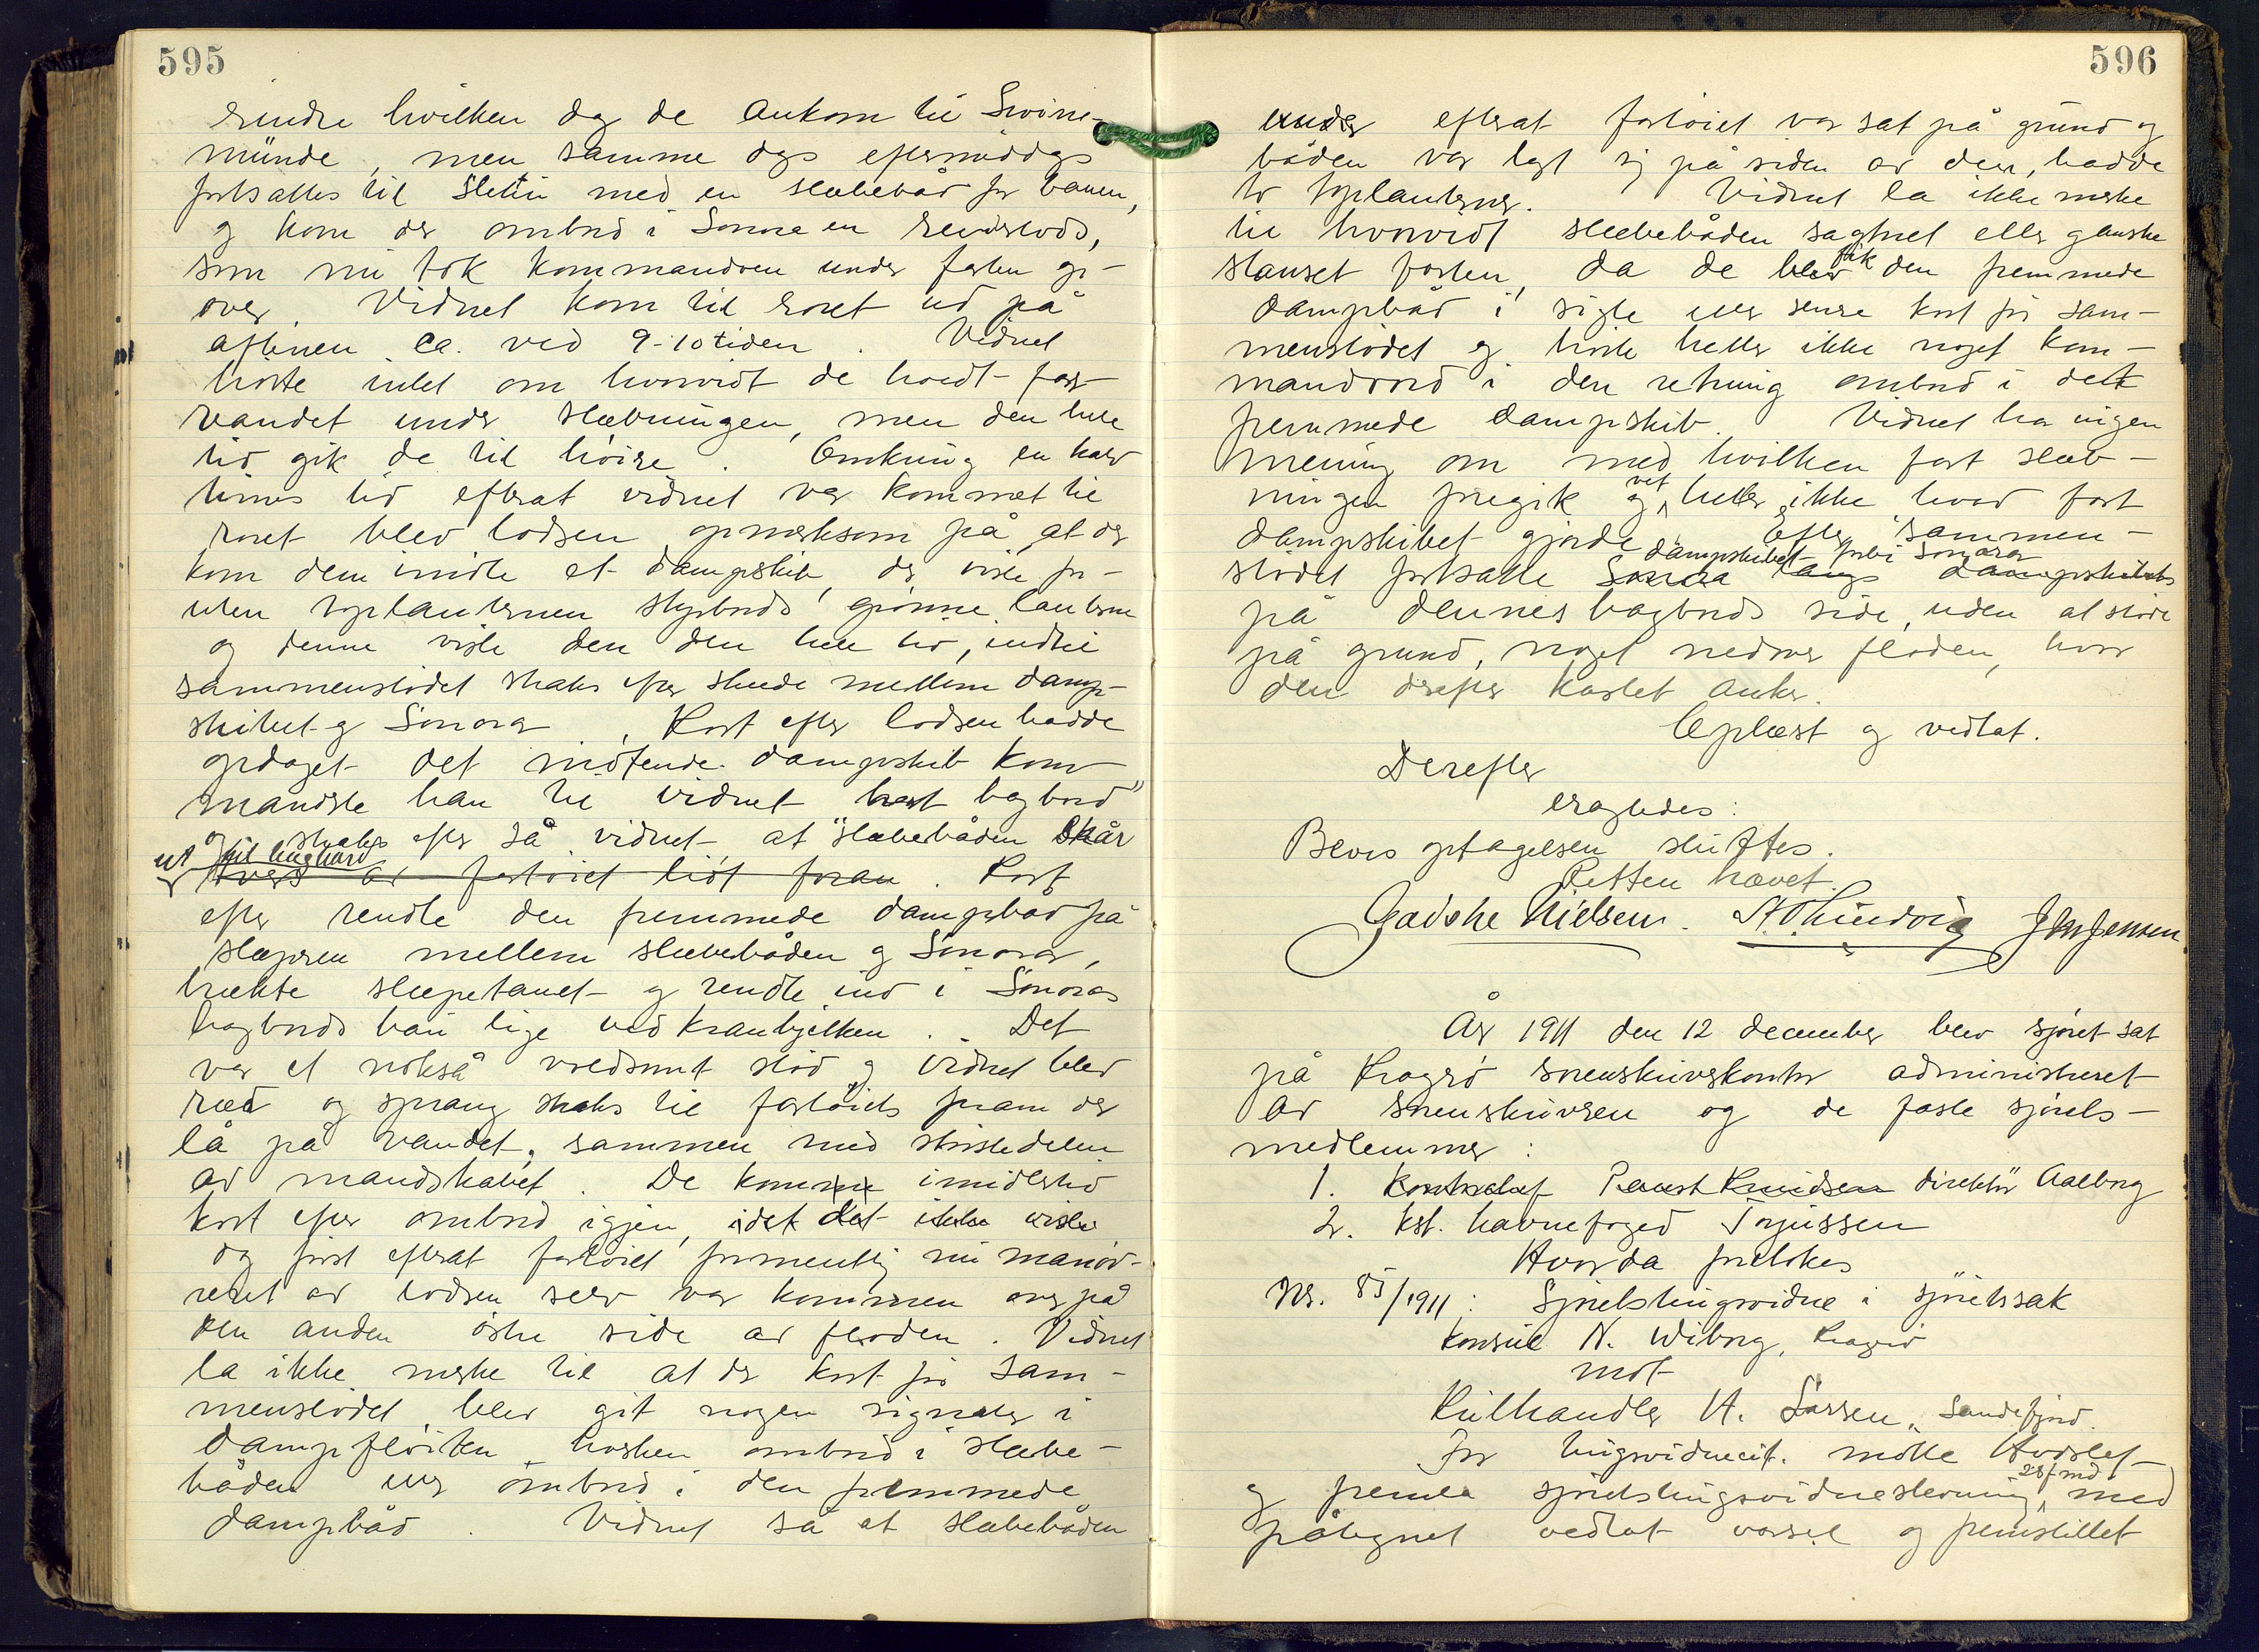 595
erindre hvilken dag de ankom til Swine-
münde, men samme dags eftermiddags
fortsattes til Stettin med en slæbebåd for bauen,
og kom der ombord i Sonora en reviderlods,
som nu tok kommandoen under farten op-
over. Vidnet kom til roret ud på
aftenen ca. ved 9-10 tiden. Vidnet
hørte intet om hvorvidt de hvidt far-
vandet under slæbningen, men den hele
tid gik de til høire. Omkring en halv
times tid efterat vidnet var kommet til
roret blev lodsen opmerksom på at der
kom dem imøte et dampskib, der viste for-
uten toplanternen styrbords grønne lanterne
og denne viste den den hele tid, indtil
sammenstødet straks efter skeede mellem damp-
skibet og Sonora. Kort efter lodsen hadde
opdaget det møtende dampskib kom-
manderte han til vidnet hart bagbord"
og straks efter så vidnet at slæbebåden skår
ut til bagbord
tvers av fartøiet lidt foran. Kort
efter rendte den fremmede dampbåd på
slæperen mellem slæbebåden og Sonora,
brækte slæpetauet og rendte ind i Sonoras
bagbords baug lige ved kranbjelken. Det
var et nokså voldsomt stød og vidnet blev
ræd og sprang straks til fartøiets pram der
lå på vandet, sammen med største delen
av mandskabet. De kom imidlertid
kort efter ombord igjen, idet det ikke viste
og først efterat fartøiet formentlig nu manøv-
reret av lodsen selv var kommen over på
den anden østre side av floden. Vidnet
la ikke merke til at der kort før sam-
menstødet blev git nogen signaler i
dampfløiten hverken ombord i slæbe-
båden eller ombord i den fremmede
dampbåd. Vidnet så at slæbebåden
596
under efterat fartøiet var sat på grund og
båden var lagt sig på siden av den, hadde
to toplanterner. Vidnet la ikke merke
til hvorvidt slæbebåden sagtnet eller ganske
stanset farten, da de blev fik den fremmede
dampbåd i sigte eller senere kort før sam-
menstødet og hørte heller ikke noget kom-
mandoord i den retning ombord i det
fremmede dampskib. Vidnet har ingen
mening om med hvilken fart slæb-
ningen foregik og vet heller ikke hvad fart
dampskibet gjorde. Efter sammen-
stødet fortsatte Sonora langs dampskibets
dampskibet forbi Sonora
på dennes bagbords side, uden at støte
på grund, noget nedover floden, hvor
den derefter kastet anker.
Oplæst og vedtat.
Derefter
eragtedes:
Bevisoptagelsen sluttes.
Retten hævet.
Gadske Nielsen. St. O. Lundvig J. Chr. Jensen
År 1911 den 12 december blev sjøret sat
på Kragerø sorenskriverkontor administreret
av sorenskriveren og de faste sjørets-
medlemmer:
1. Knudsen direktør Aalborg
2. kst. havnefoged Torjussen
Hvorda foretokes
Nr. 85/1911: Sjøretstingsvidne i sjøretssak
konsul N. Wiborg, Kragerø
mot
Kulhandler A. Larsen, Sandefjord.
For tingsvidnecit. møtte Hvidslef
og fremla sjøretstingsvidnestevning 28 f. md. med
påtegnet vedtat varsel og fremstillet